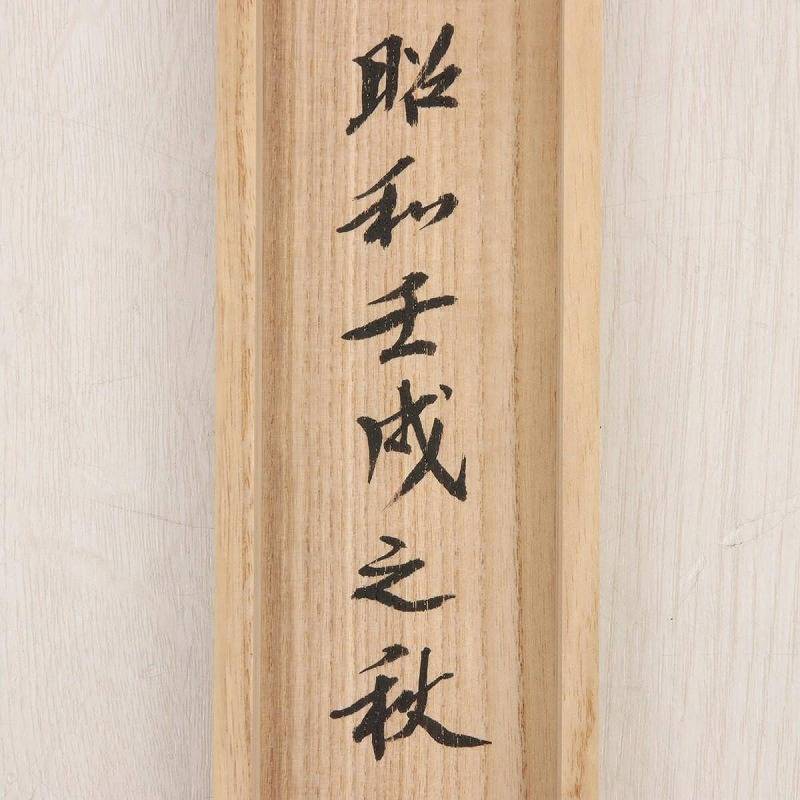 昭和壬戌之秋